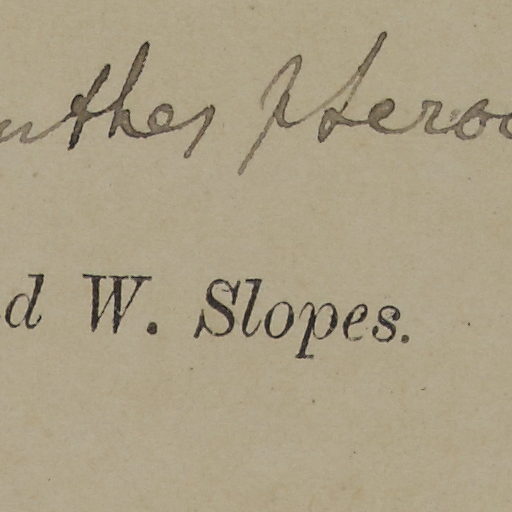 nthes pteroc
d W. Slopes.